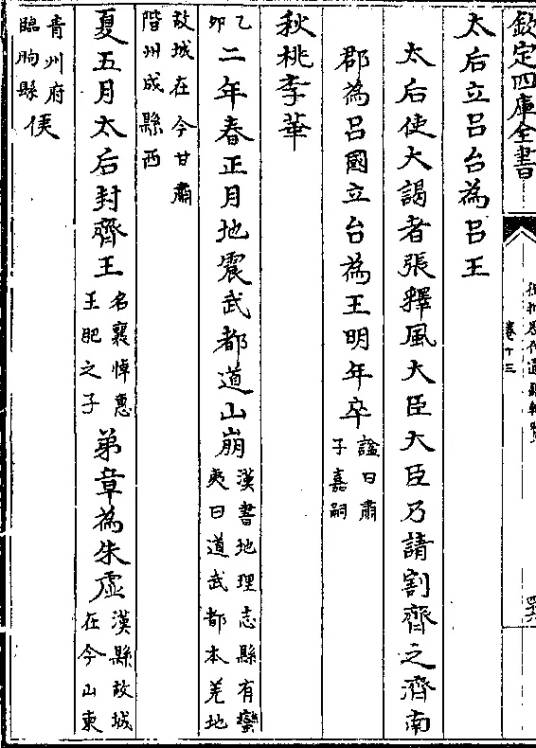 欽定四庫全書
卷十三
太后立呂台為呂王
太后使大謁者張釋風大臣大臣乃請割齊之濟南
郡為呂國立台為王明年卒謚曰肅子嘉嗣
秋桃李華
乙卯二年春正月地震武都道山崩漢書地理志縣有蠻夷曰道武都本羌地
故城在今甘肅階州成縣西
夏五月太后封齊王名襄悼惠王肥之子弟章為朱虛漢縣故城在今山東
青州府臨朐縣侯